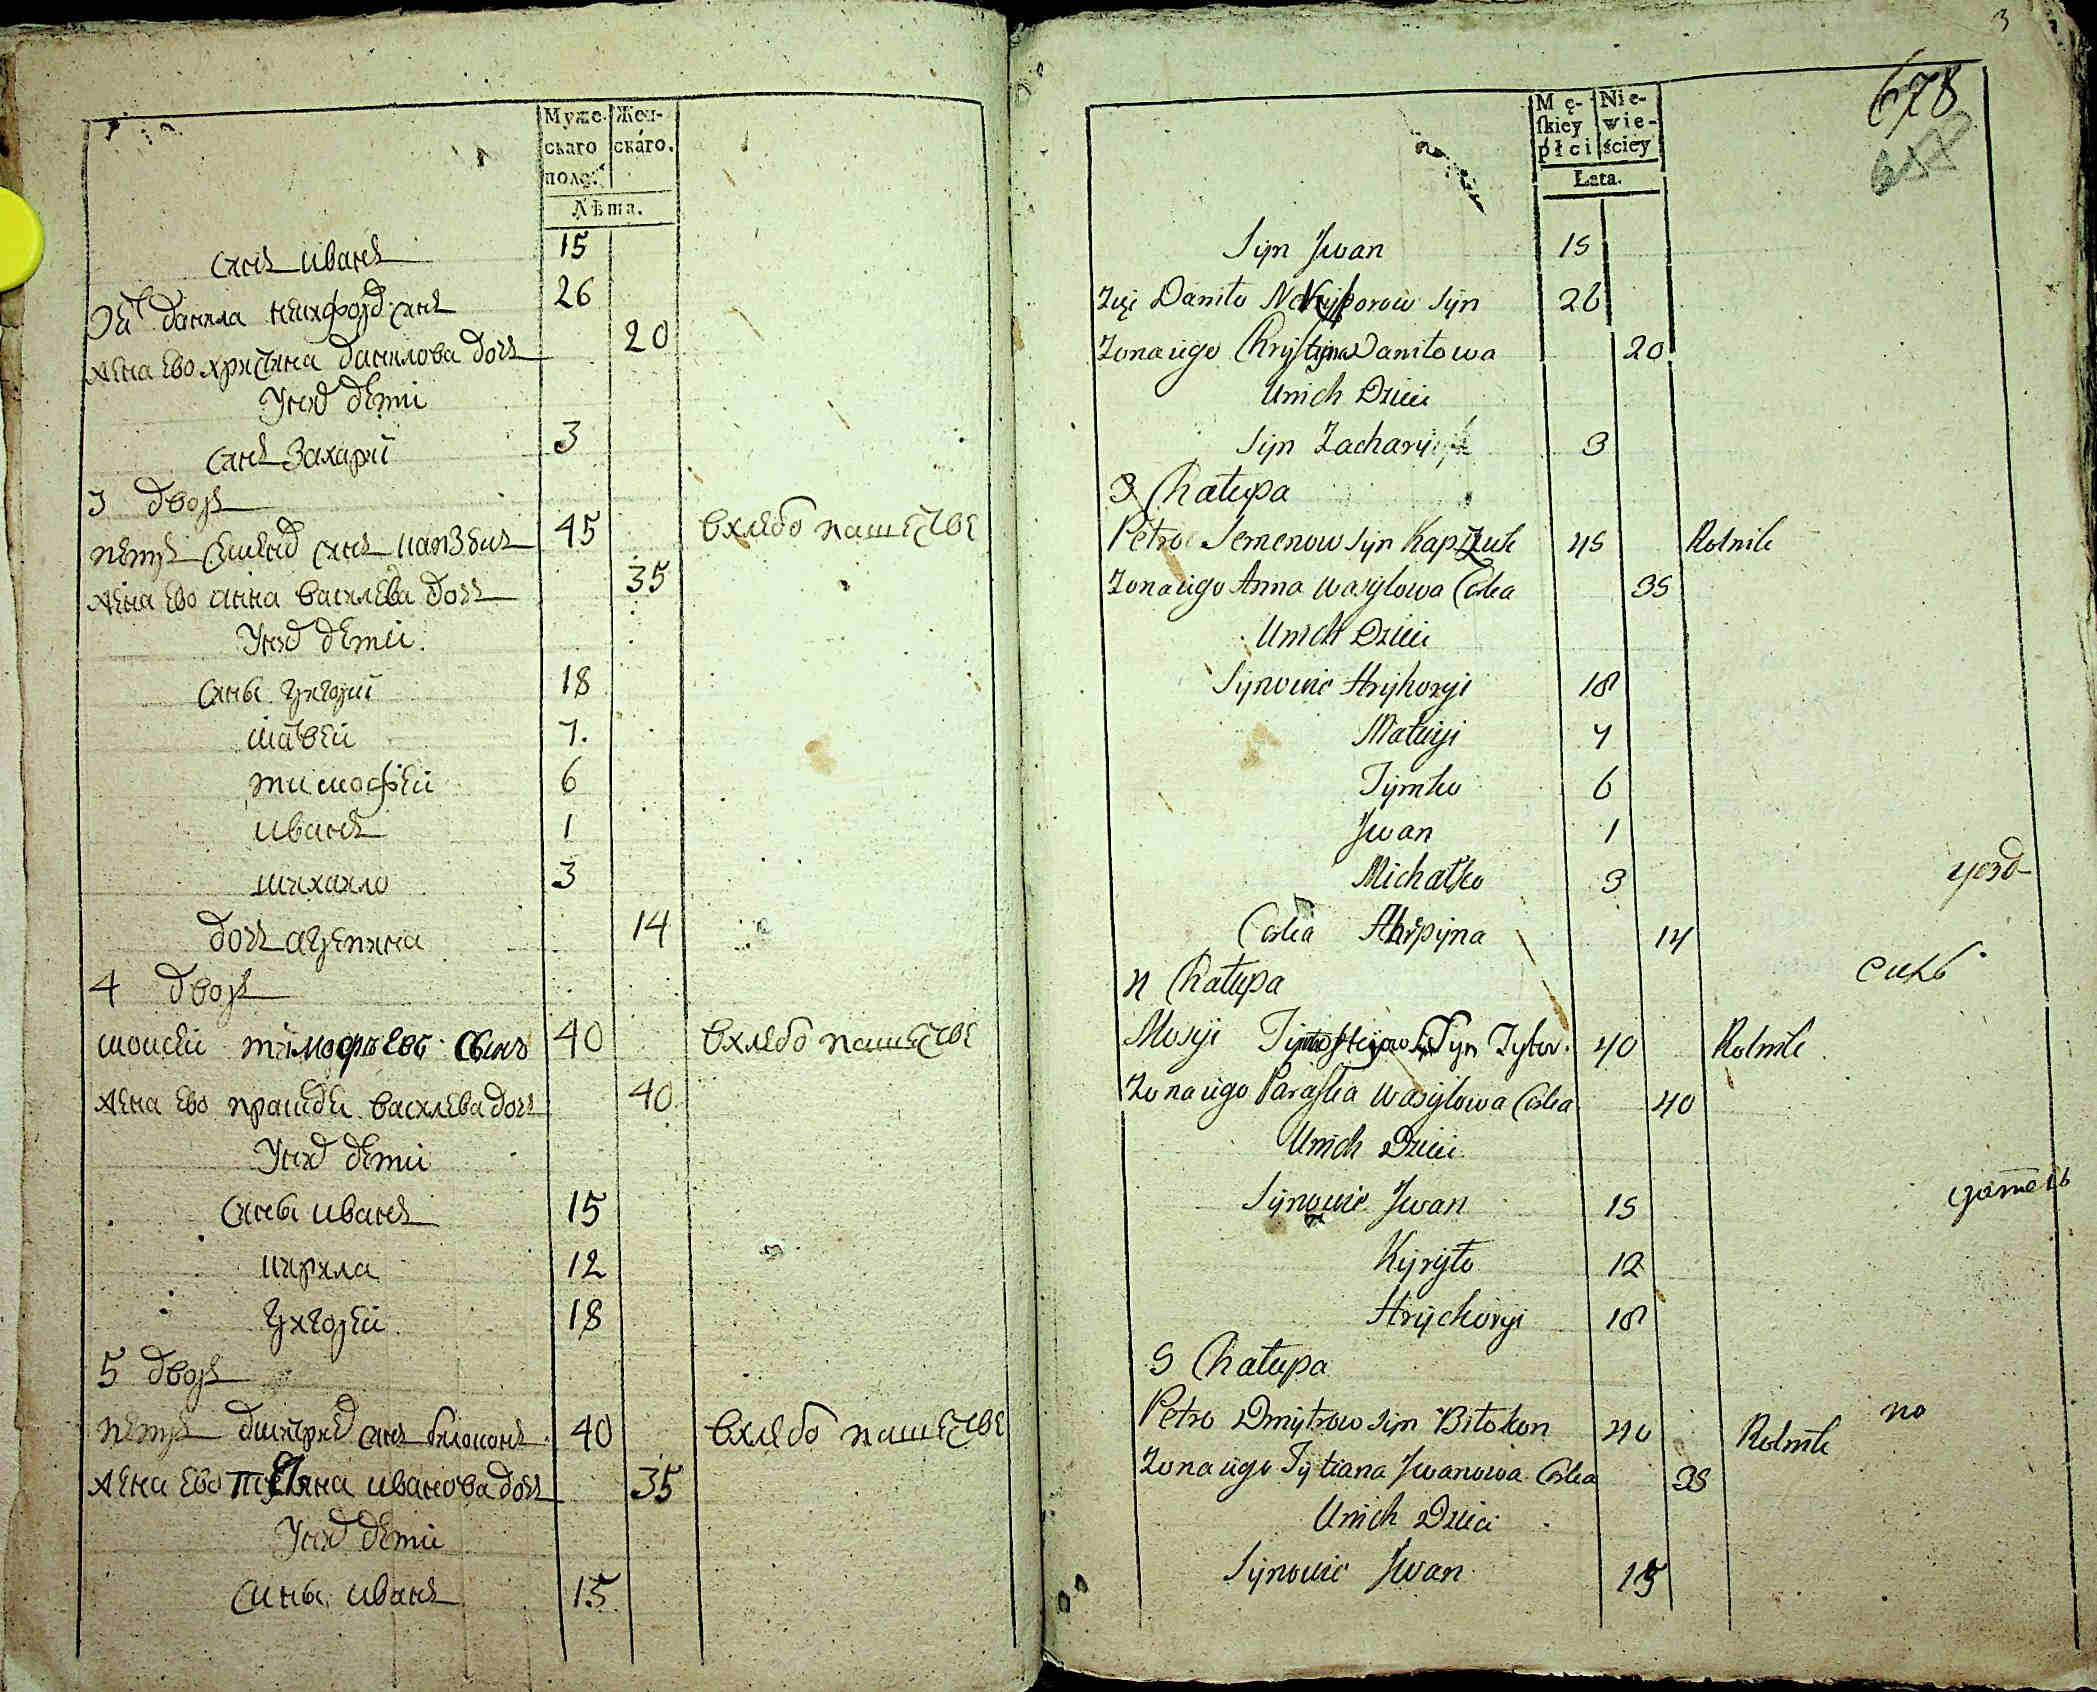 Муже- Жен-
скаго скаго.
полу.
Лѣта.
Сынъ Иванъ 15
Зять Данила Никифоров Сынъ 26
Жена ево Христина Данилова дочь 20
У них дети
Сынъ Захарий 3
3 дворъ
Петръ Семенов Сынъ 45 в хлебопашестве
Жена ево Анна Василева дочь 35
У них дети.
Сыны Григорий 18
Матвей 7.
Тимофей 6
Иванъ 1
Михайло 3
Дочь Агрепина 14
4 дворъ
Мойсей Тимофѣевъ Сынъ 40 в хлебопашестве
Жена ево Василева дочь 40
У них дети
Сыны Иванъ 15
Кирила 12
Григорей 18
5 дворъ
Петръ Дмитриев Сынъ Билоконь 40 в хлебопашестве
Жена ево Татяна Иванова дочь 35
У них дети
Сыны Иванъ 15
3
678
657
Mę- Nie-
skiey wie-
płci ściey
Lata.
Syn Jwan 15
Zięć Daniło Nykyporow Syn 26
Zona iego Chrystyna Daniłowa 20
U nich Dzieci
Syn Zachary 3
3 Chałupa
Petro Semenow Syn 45 Rolnik
Zona iego Anna Wasylowa Corka 35
U nich Dzieci
Synowie Hryhoryi 18
Matwyi 7
Tymko 6
Jwan 1
Michałko 3
Corka Ahrpyna 14
4 Chałupa
Mosyi Syn 40 Rolnik
Zona iego Paraska Wasylowa Corka 40
U nich Dzieci
Synowie Jwan 15
Kyryło 12
Hrychoryi 18
5 Chałupa
Petro Dmytrow Syn Biłokon 40 Rolnik
по
Zona iego Tytiana Jwanowa Corka 35
U nich Dzieci
Synowie Jwan 15